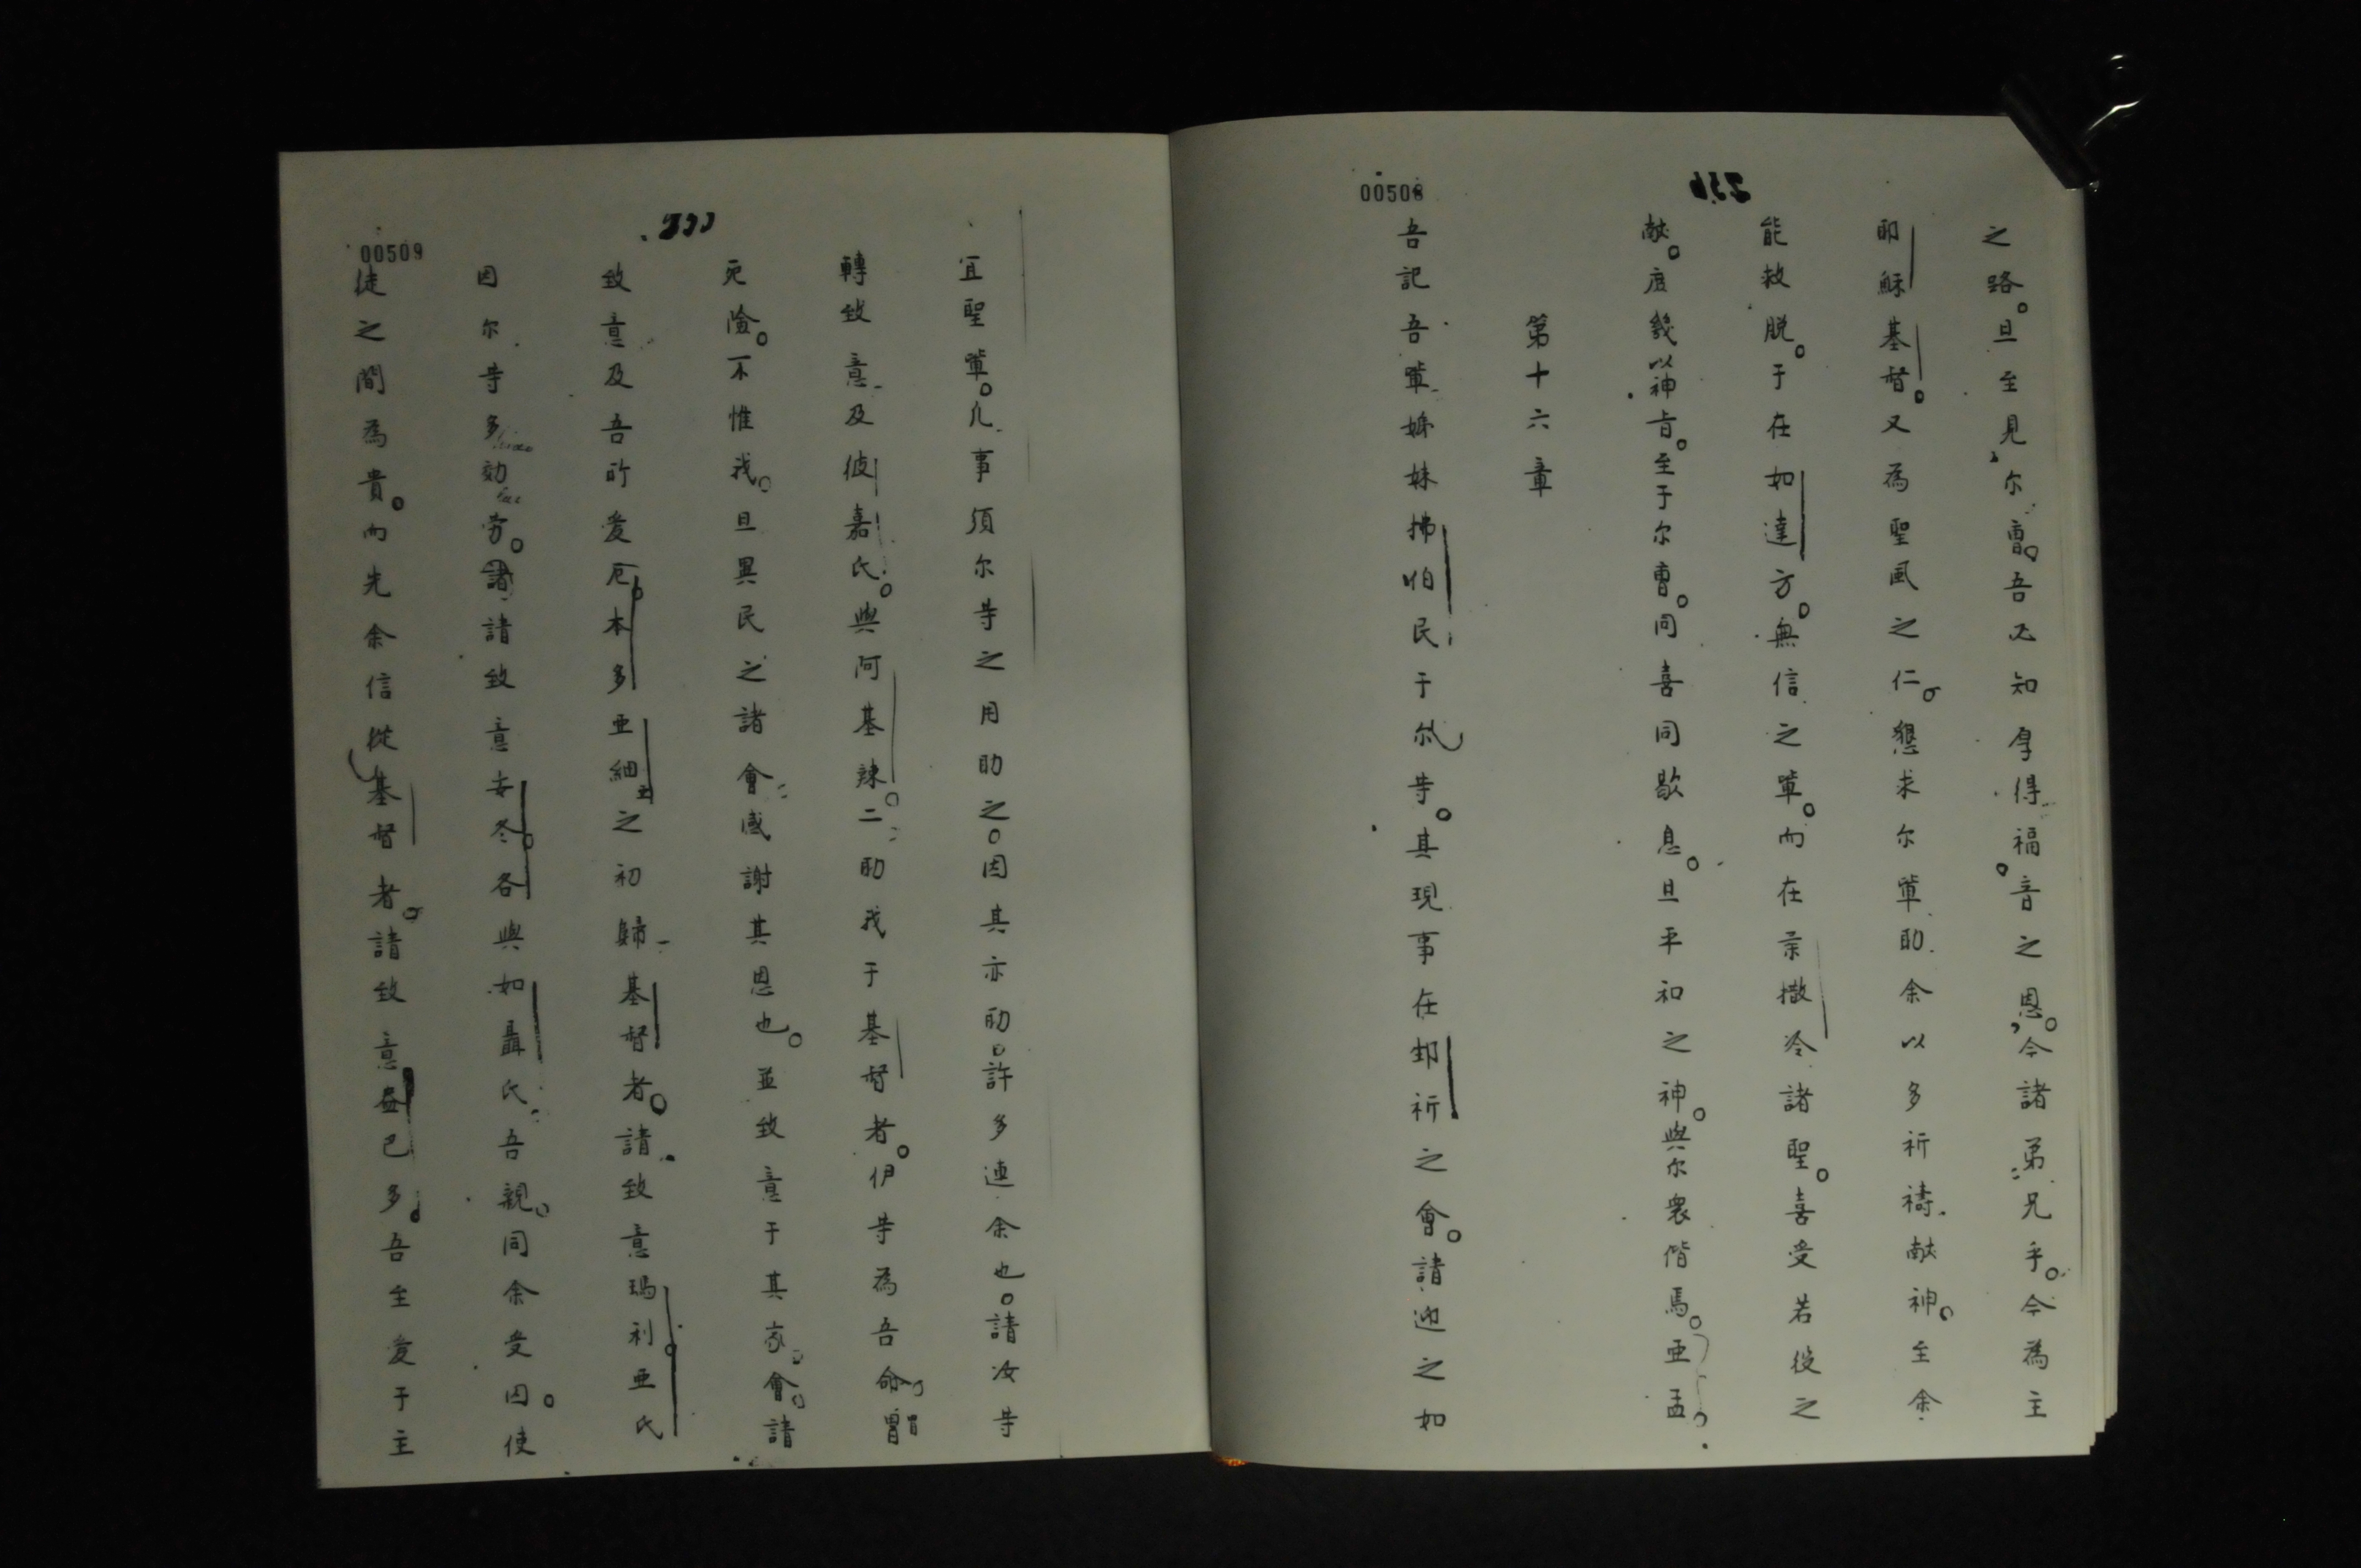 00508
236
之路。且至見尔曹。吾必知厚得福音之恩。今諸弟兄乎。今為主
耶穌基督。又為聖風之仁。懇求尔輩助余以多祈禱献神。至余
能救脱。于在如達方。無信之輩。而在柔撒冷諸聖。喜受若役之
献。庶幾以神旨。至于尔曹。同喜同歇息。且平和之神。與尔衆偕焉。亜孟。
第十六章
吾記吾輩姊妹拂怕民于尔等。其現事在邽祈之會。請迎之如
宜聖輩。凡事須尔等之用助之。因其亦助許多連余也。請汝等
轉致意及彼嘉氏。與阿基辣。二助我于基督者。伊等為吾命。曾冒
死險。不惟我。且異民之諸會感謝其恩也。並致意于其家會。請
致意及吾所爱厄本多亜細亜之初歸基督者。請致意瑪利亜氏
因尔等多効劳。請致意安多各與如聶氏吾親。同余受囚。使
徒之間為貴。而先余信從基督者。請致意盎巴多。吾至爱于主
00509